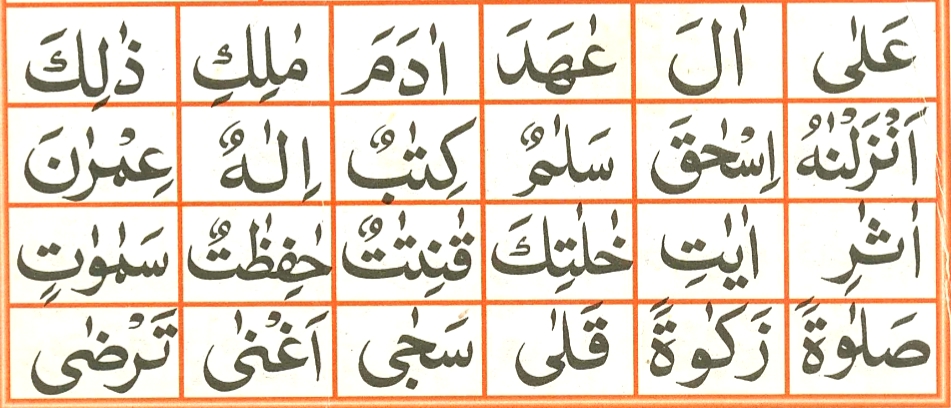 عَلٰى اٰلَ عٰهَدَ اٰدَمَ مٰلِكِ ذٰلِكَ
اَنْزَلْنٰهُ اِسْحٰقَ سَلٰمٌ كِتٰبٌ اِلٰهٌ عِمْرٰنَ
اٰثٰرِ اٰيٰتِ خٰلٰتِكَ قٰنِتٰتٌ حٰفِظٰتٌ سَمٰوٰتٍ
صَلٰوةً زَكٰوةً قَلٰى سَجٰى اَغْنٰى تَرْضٰى